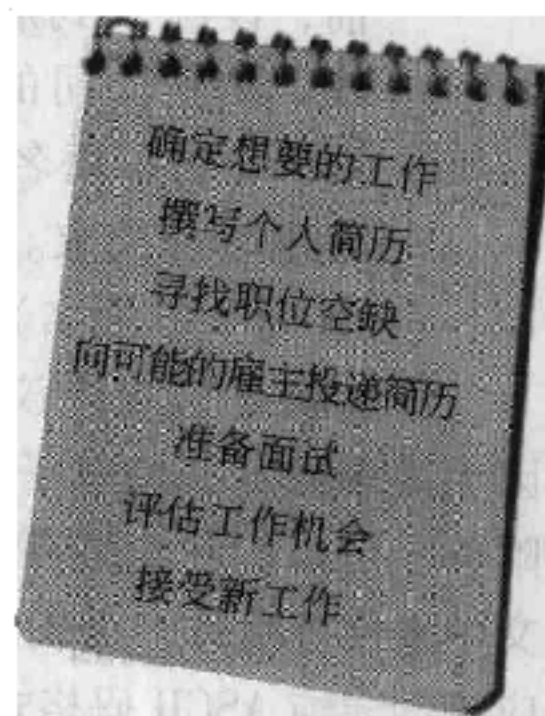 确定想要的工作
撰写个人简历
寻找职位空缺
向可能的雇主投递简历
准备面试
评估工作机会
接受新工作